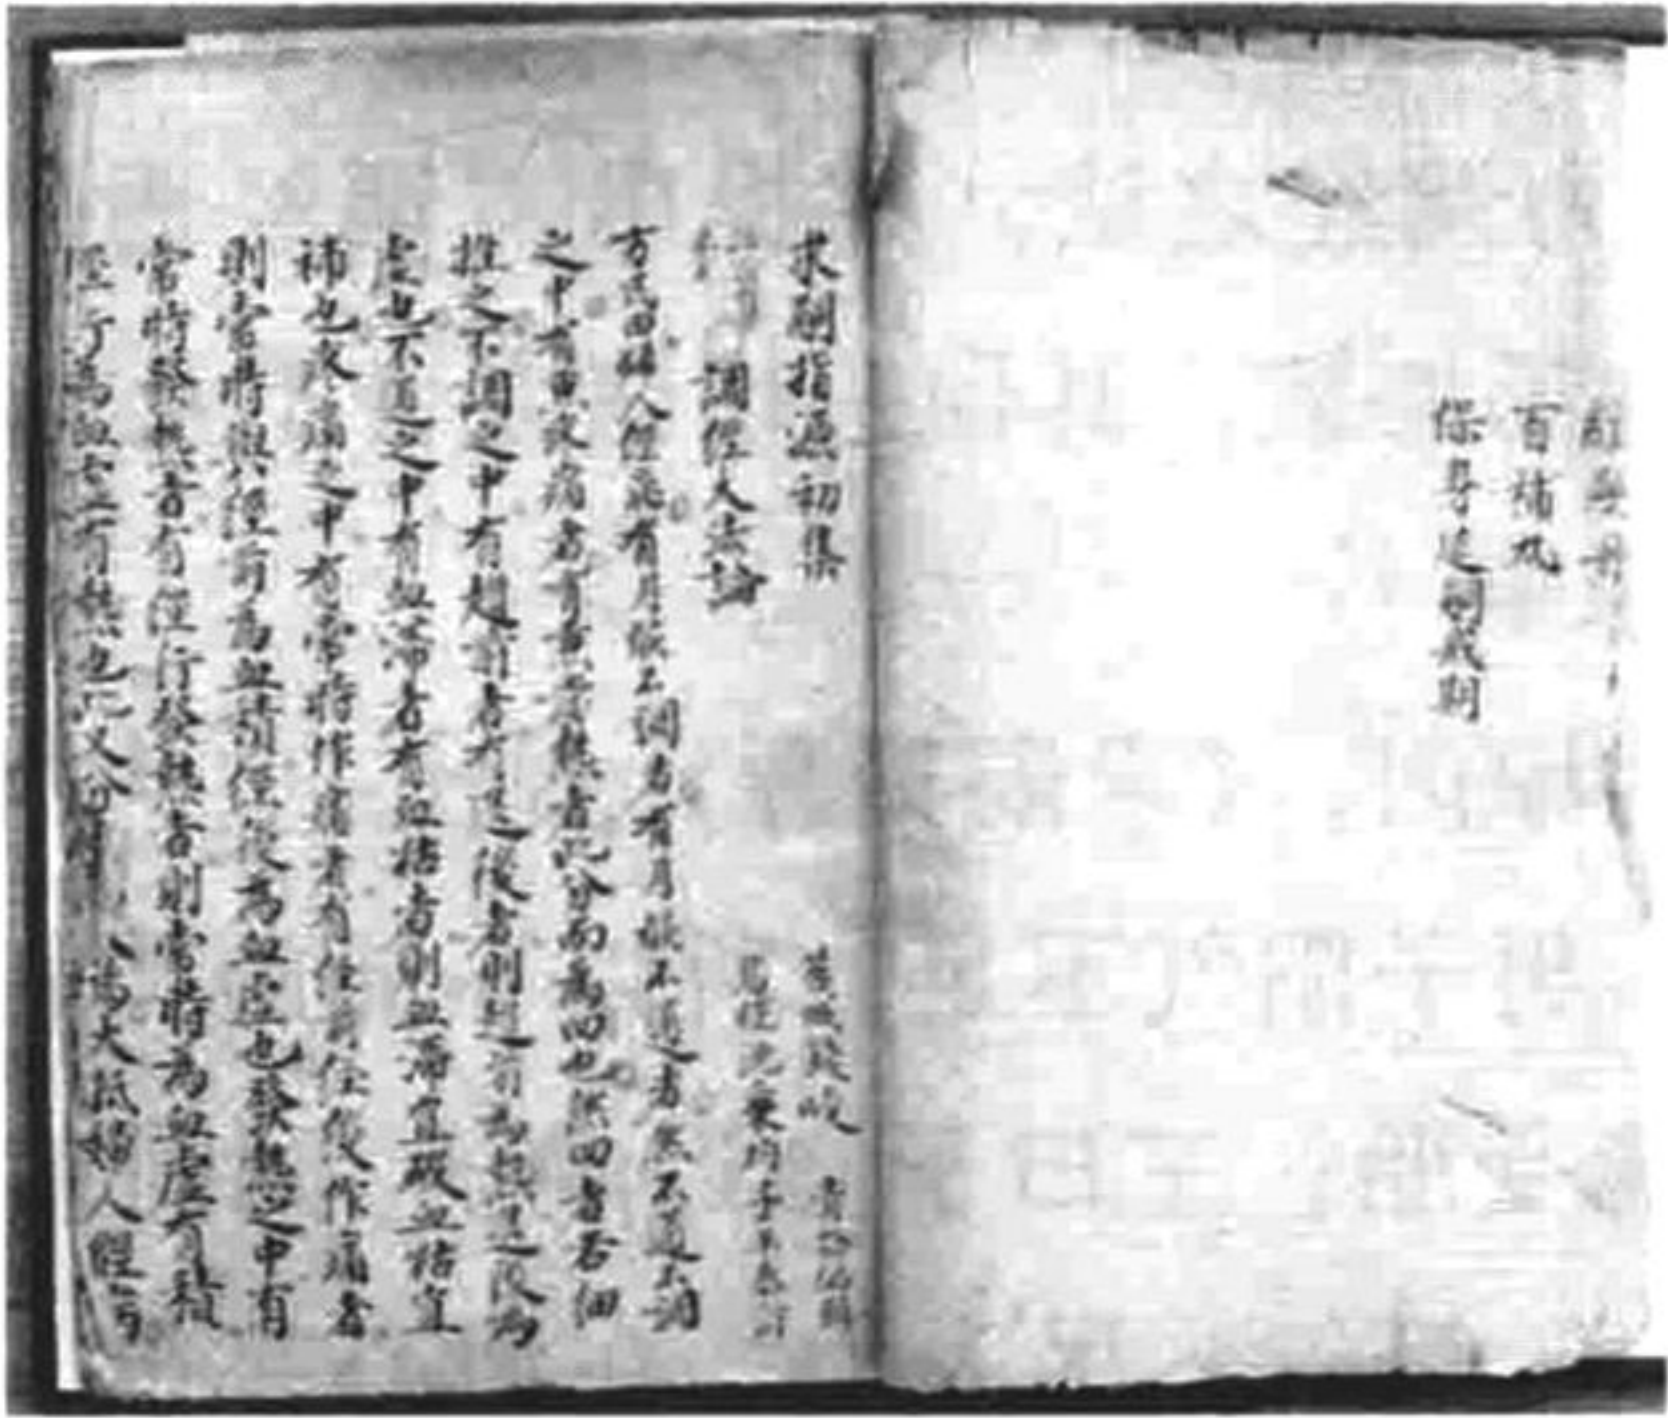 百補丸
保尊延嗣戒期
求嗣指源初集
調經大法論
方氏曰婦人經病有月候不調者有月候不通者然不通不調
之中有兼疼痛者有兼發熱者此分而爲四也然四者若細
推之不調之中有趲前者有退後者則趲前爲熱退後爲
虛也不通之中有血滯者有血枯者則血滯宜破血枯宜
補也疼痛之中有常時作痛者有經前經後作痛者
則常時與經前爲血積經後爲血虛也發熱之中有
常時發熱者有經行發熱者則常時爲血虛有積
經行爲血虛有熱也此又分爲 大抵婦人經